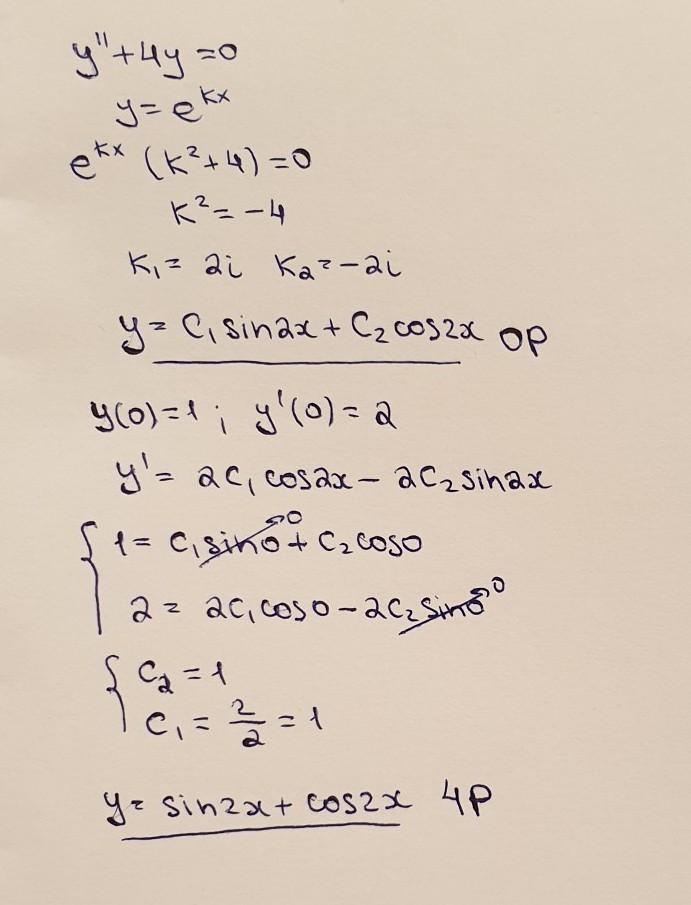 y''+4y=0
y=e^{kx}
e^{kx} (k²+4)=0
k²=-4
k₁= 2i k₂=-2i
y= C₁sin2x+C₂cos2x ОР
y(0)=1; y'(0)=2
y'= 2C₁cos2x-2C₂sin2x
{ 1= C₁sin0→0+C₂cos0
2= 2C₁cos0-2C₂sin0→0
{ C₂=1
C₁= 2/2 =1
y= sin2x+cos2x ЧР